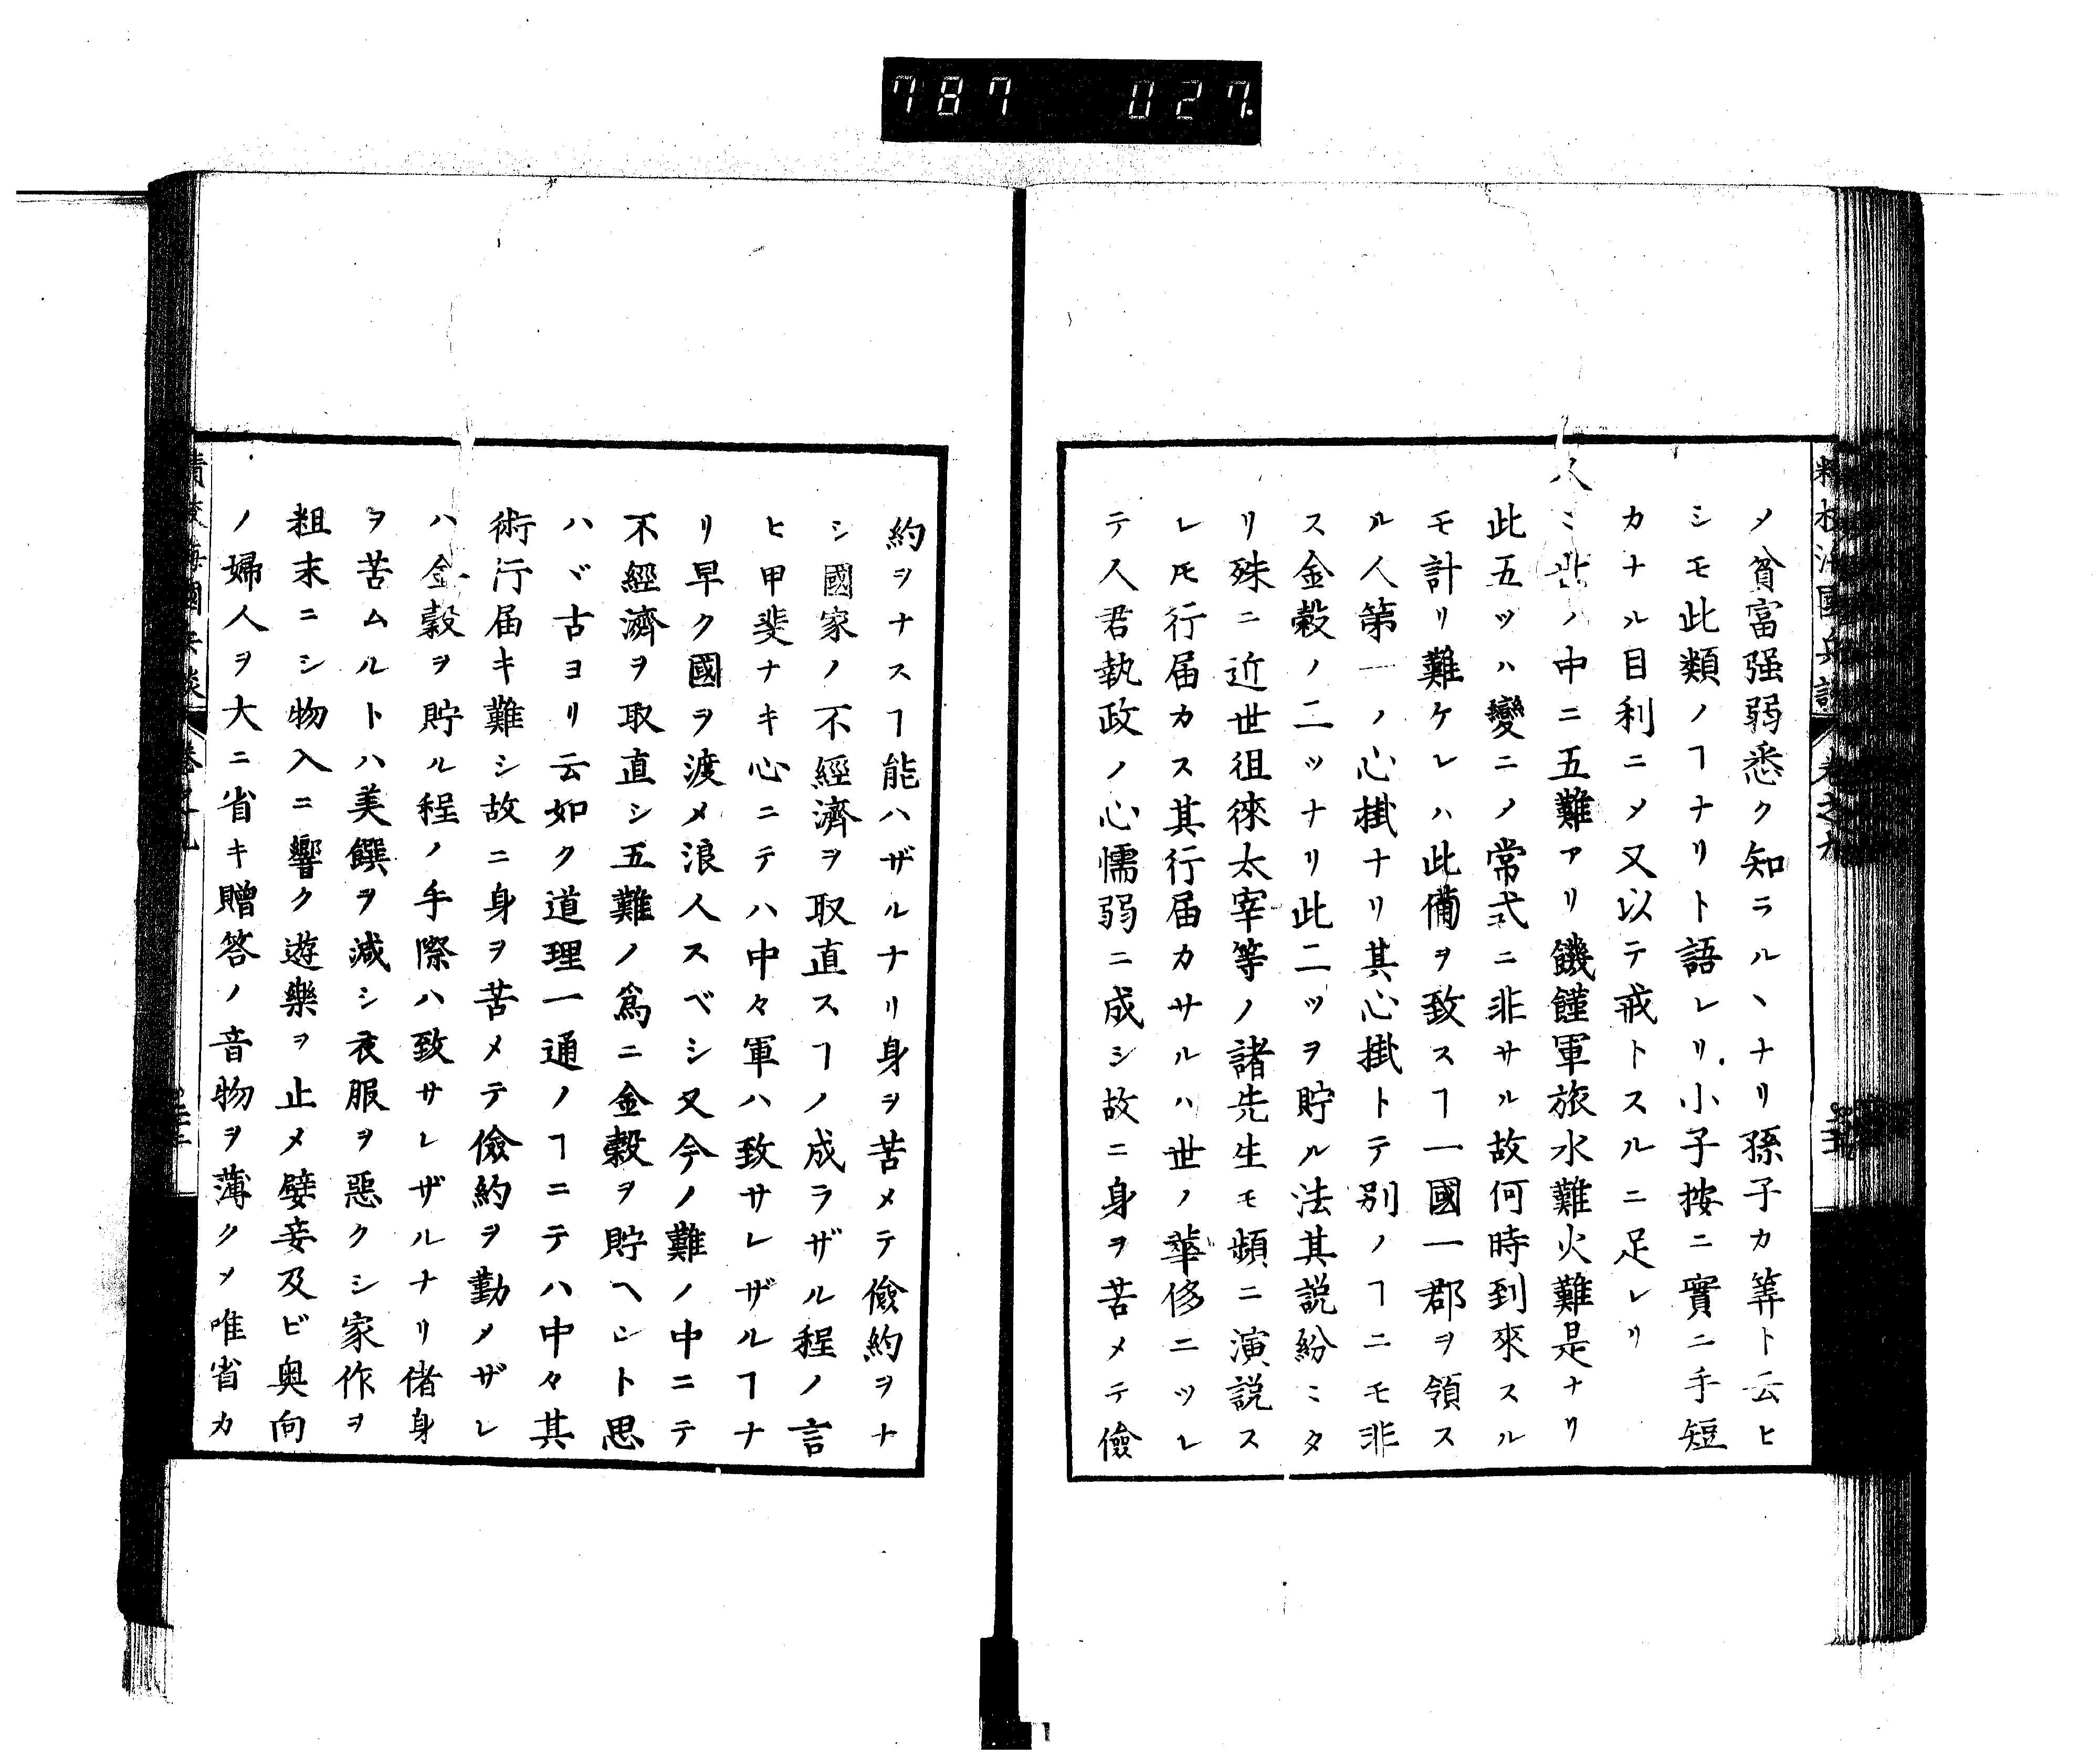 787 027
ノ貧富强弱悉ク知ラルヽナリ孫子カ筭ト云ヒ
シモ此類ノヿナリト語レリ小子按ニ實ニ手短
カナル目利ニメ又以テ戒トスルニ足レリ
人ミ世ノ中ニ五難アリ饑饉軍旅水難火難是ナリ
此五ツハ變ニノ常式ニ非サル故何時到來スル
モ計リ難ケレハ此備ヲ致スヿ一國一郡ヲ領ス
ル人第一ノ心掛ナリ其心掛トテ別ノヿニモ非
ス金穀ノ二ツナリ此二ツヲ貯ル法其説紛ミタ
リ殊ニ近世徂徠太宰等ノ諸先生モ頻ニ演説ス
レ𪜈行届カス其行届カサルハ世ノ華侈ニツレ
テ人君執政ノ心懦弱ニ成シ故ニ身ヲ苦メテ儉
約ヲナスヿ能ハザルナリ身ヲ苦メテ儉約ヲナ
シ國家ノ不經濟ヲ取直スヿノ成ラザル程ノ言
ヒ甲斐ナキ心ニテハ中々軍ハ致サレザルヿナ
リ早ク國ヲ渡メ浪人スベシ又今ノ難ノ中ニテ
不經濟ヲ取直シ五難ノ爲ニ金穀ヲ貯ヘント思
ハヾ古ヨリ云如ク道理一通ノヿニテハ中々其
術行届キ難シ故ニ身ヲ苦メテ儉約ヲ勤メザレ
ハ金穀ヲ貯ル程ノ手際ハ致サレザルナリ偖身
ヲ苦ムルトハ美饌ヲ減シ衣服ヲ惡クシ家作ヲ
粗末ニシ物入ニ響ク遊樂ヲ止メ嬖妾及ビ奥向
ノ婦人ヲ大ニ省キ贈答ノ音物ヲ薄クメ唯省カ